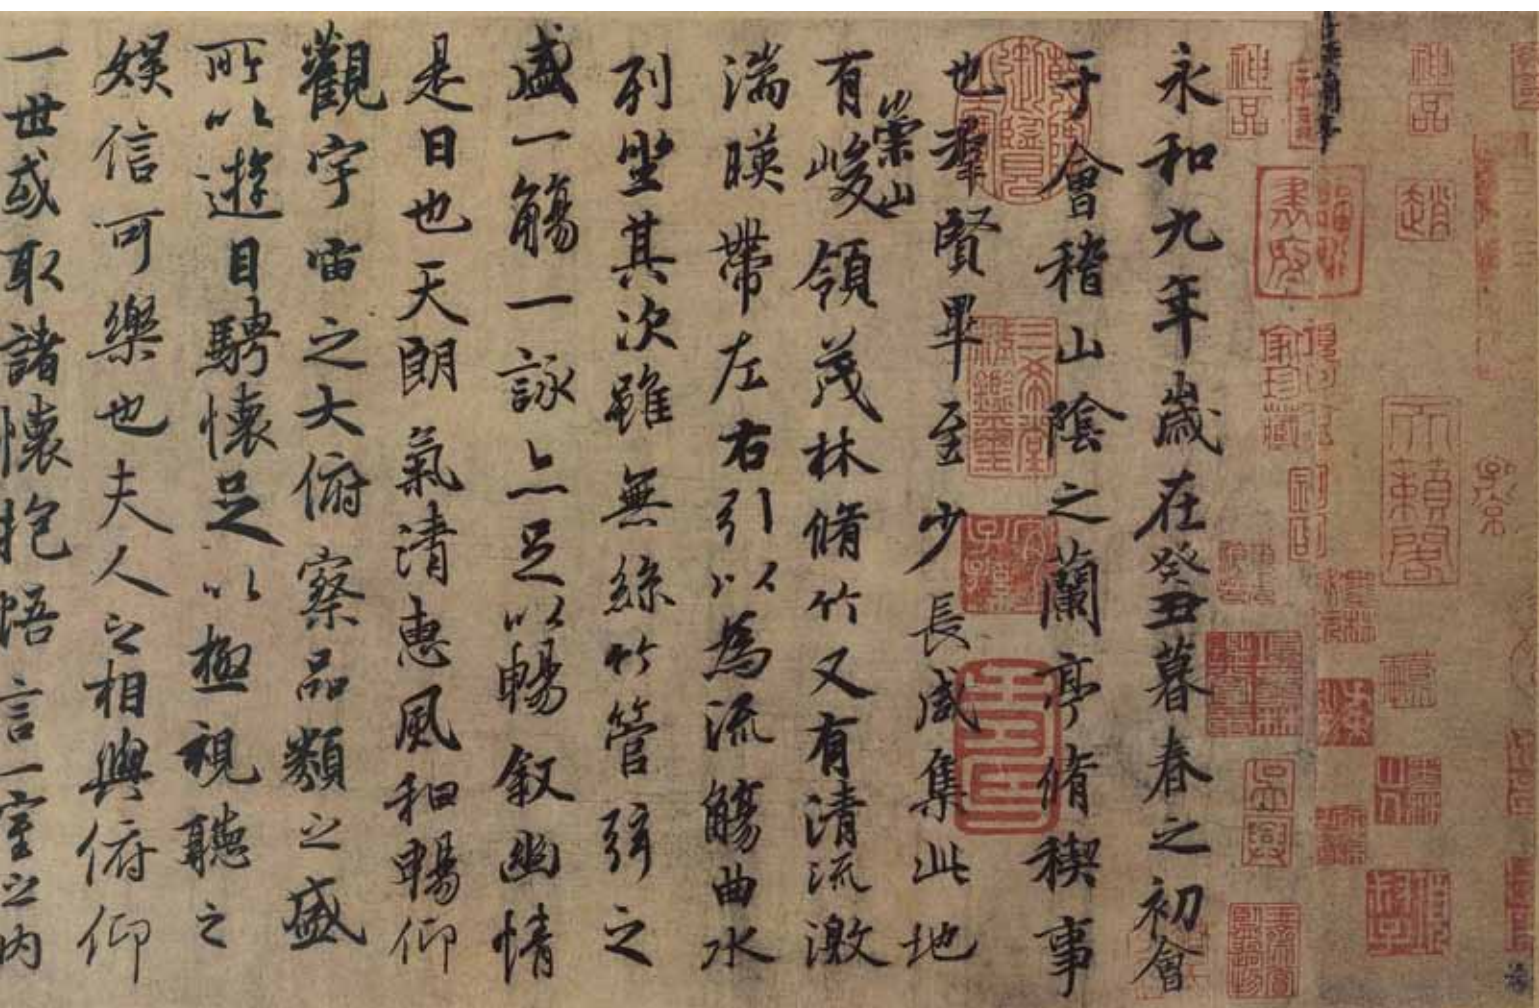 神品
趙
天籟閣
神品
吳興
永和九年歲在癸丑暮春之初會
于會稽山陰之蘭亭脩稧事
三希堂精鑑璽
宜子孫
也羣賢畢至少長咸集此地
有崇山峻領茂林脩竹又有清流激
湍暎帶左右引以為流觴曲水
列坐其次雖無絲竹管弦之
盛一觴一詠亦足以暢敘幽情
是日也天朗氣清惠風和暢仰
觀宇宙之大俯察品類之盛
所以遊目騁懷足以極視聽之
娛信可樂也夫人之相與俯仰
一世或取諸懷抱悟言一室之內